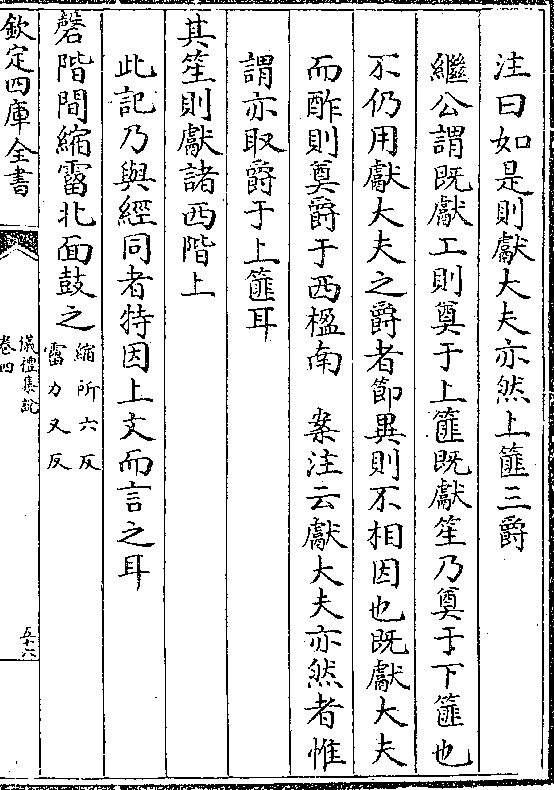 注曰如是則獻大夫亦然上篚三爵
繼公謂既獻工則奠于上篚既獻笙乃奠于下篚也
不仍用獻大夫之爵者節異則不相因也既獻大夫
而酢則奠爵于西楹南　案注云獻大夫亦然者惟
謂亦取爵于上篚耳
其笙則獻諸西階上
此記乃與經同者特因上文而言之耳
磬階間縮霤北面鼓之縮所六反
霤力又反
欽定四庫全書
儀禮集說
卷四
五十六